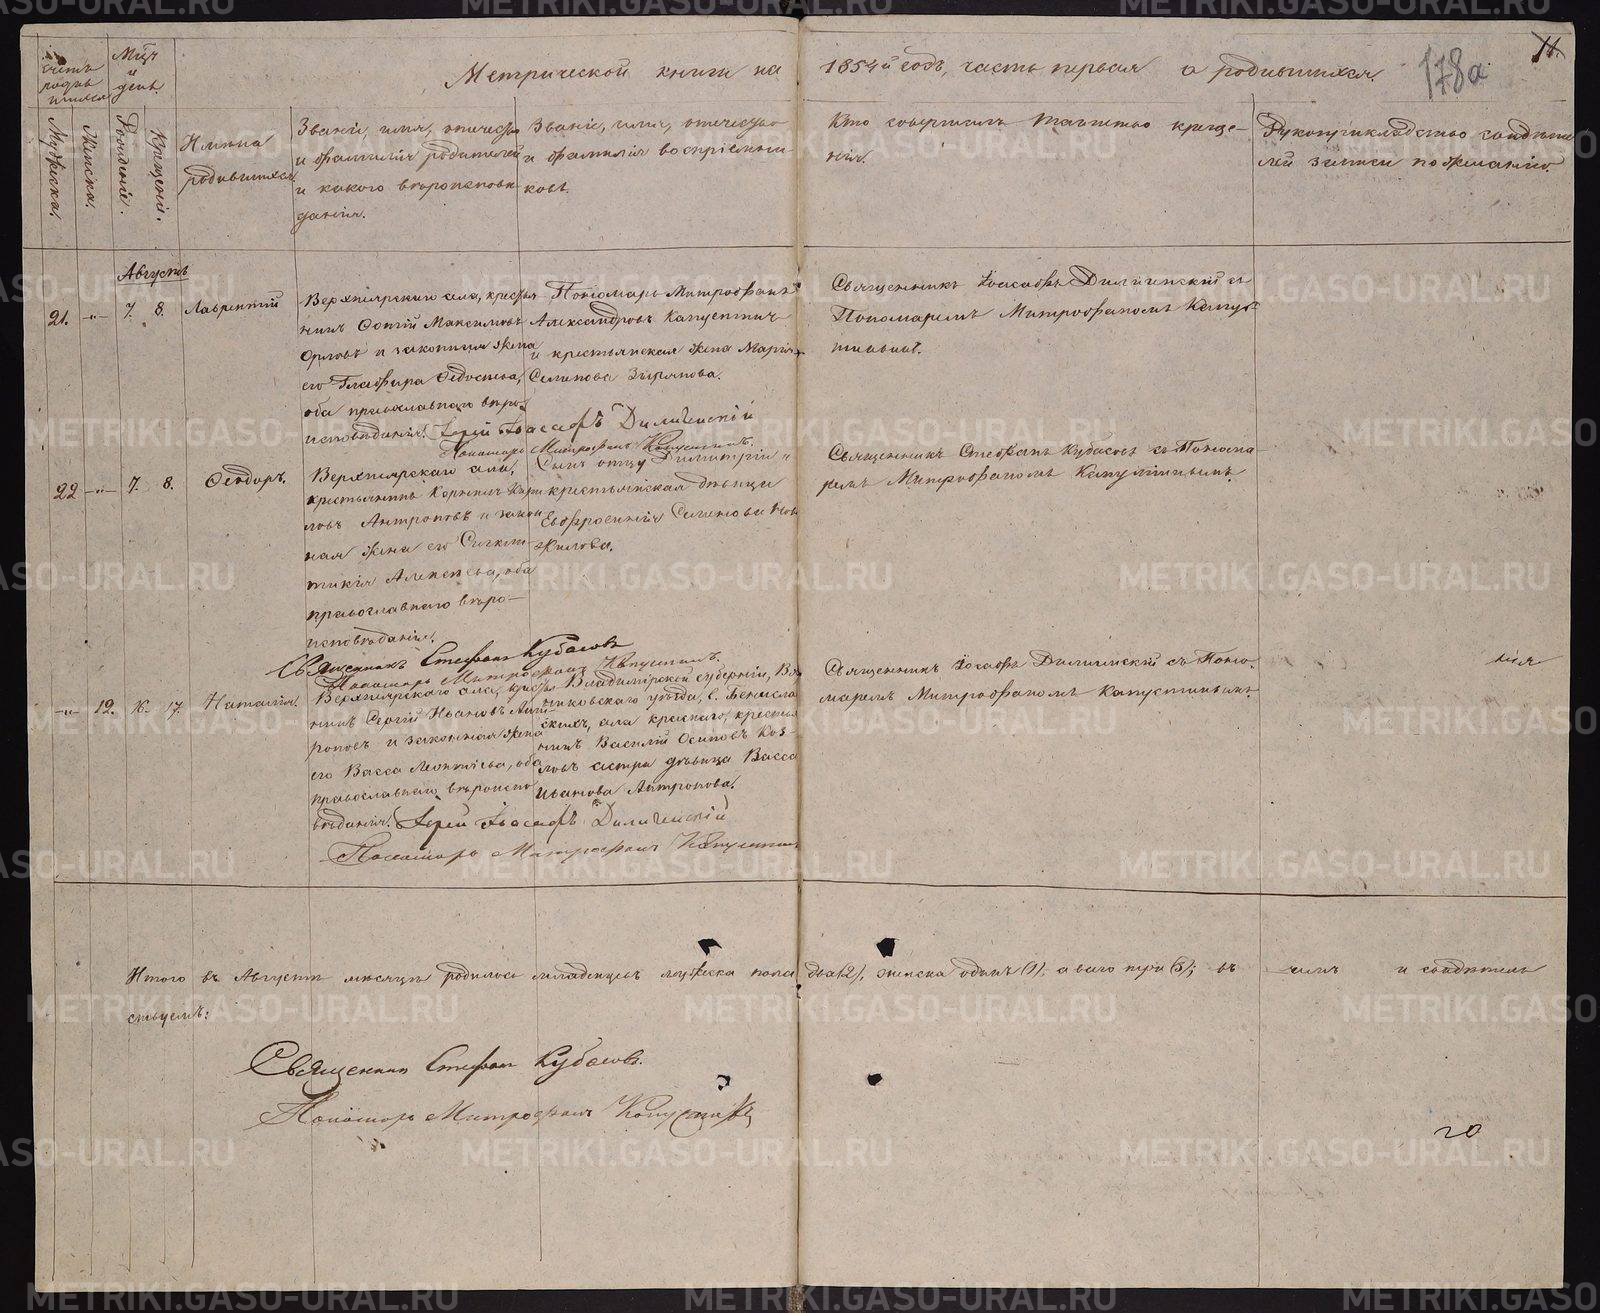 Метрической книги на 1854й годъ, часть первая о родившихся.
178а
11.
Счетъ родившихся
Мѣс. и день.
Мужеска.
Женска.
Рожденія.
Крещенія.
Имена
родившихся
Званіе, имя, отечество
и фамилія родителей
и какого вѣроисповѣ
данія.
Званіе, имя, отечество
и фамилія воспріемни
ковъ.
Кто совершилъ таинство креще-
нія.
Рукоприкладство свидѣте
лей записи по желанію.
Августъ
21. -"- 7. 8. Лаврентій
Верхнярскаго села, крестья
нинъ Максимовъ
Орловъ и законная жена
его Глафира Ѳедосѣева,
оба православнаго вѣро-
исповѣданія. Іерей Іоасафъ Дилигенскій
Пономарь Митрофанъ Капустинъ.
Пономарь Митрофанъ
Александровъ Капустинъ
и крестьянская жена Марія
Семенова Зырянова.
Священникъ Іоасафъ Дилигенскій съ
Пономаремъ Митрофаномъ Капус-
тинымъ.
22 -"- 7. 8. Ѳеодоръ.
Верхнярскаго села,
крестьянинъ Корнилъ Кири
ловъ Антроповъ и закон
ная жена его Синкли-
тикія Алексѣева, оба
православнаго вѣро-
исповѣданія.
Священникъ Стефанъ Кубасовъ
Пономарь Митрофанъ Капустинъ.
Димитрій и
крестьянская дѣвица
Евфросинія Семенова
Священникъ Стефанъ Кубасовъ съ Понома-
ремъ Митрофаномъ Капустинымъ.
-"- 12. 16. 17. Наталія.
Верхнярскаго села, крестья
нинъ Сергій Ивановъ Ант-
роповъ и законная жена
его Васса Леонтіева, оба
православнаго вѣроиспо
вѣданія. Іерей Іоасафъ Дилигенскій
Пономарь Митрофанъ Капустинъ
Владимірской губерніи, Вяз
никовскаго уѣзда,
села краснаго, крестья
нинъ Василій Осиповъ Коз-
ловъ дѣвица Васса
Иванова Антропова.
Священникъ Іоасафъ Дилигенскій съ Поно-
маремъ Митрофаномъ Капустинымъ.
Итого въ Августѣ мѣсяцѣ родилось младенцевъ мужеска пола два (2), женска одинъ (1), а всего три (3); въ чемъ и свидѣтель
ствуемъ:
Священникъ Стефанъ Кубасовъ.
Пономарь Митрофанъ Капустинъ
METRIKI.GASO-URAL.RU